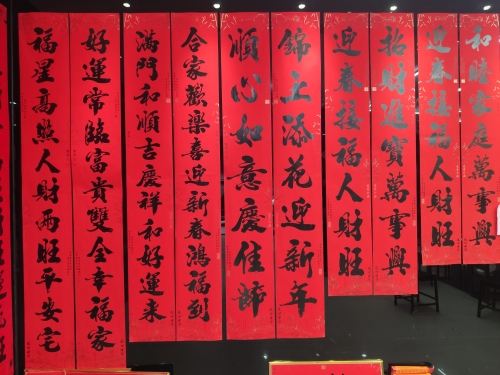 和睦家庭萬事興
迎春接福人財旺
招財進寶萬事興
迎春接福人財旺
錦上添花迎新年
順心如意慶佳節
合家歡樂喜迎新春鴻福到
滿門和順吉慶祥和好運來
好運常臨富貴雙全幸福家
福星高照人財兩旺平安宅